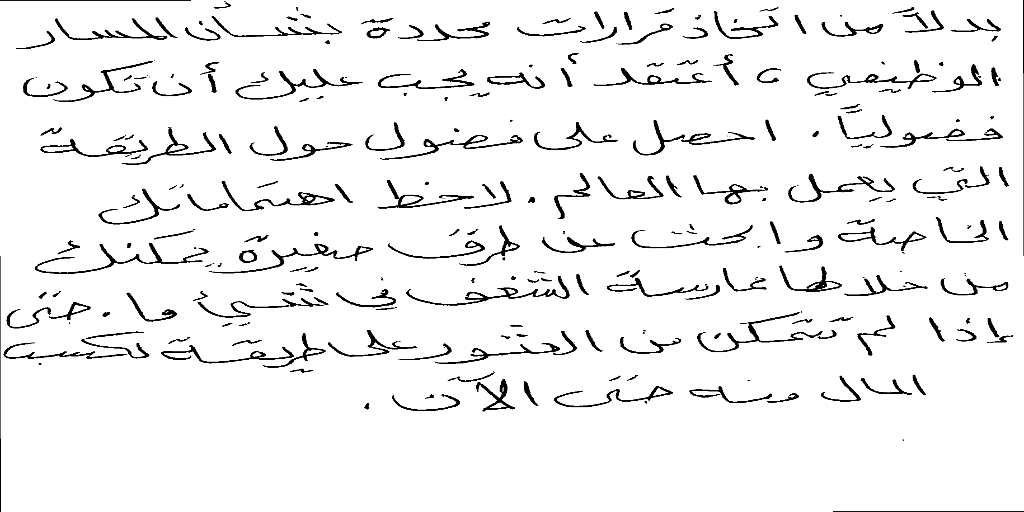 بدلاً من اتخاذ قرارات محددة بشأن المسار
الوظيفي ، أعتقد أنه يجب عليك أن تكون
فضولياً . احصل على فضول حول الطريقة
التي يعمل بها العالم . لاحظ اهتماماتك
الخاصة وابحث عن طرق صغيرة يمكنك
من خلالها ممارسة الشغف في شيئ ما . حتى
إذا لم تتمكن من العثور على طريقة لكسب
المال منه حتى الآن .